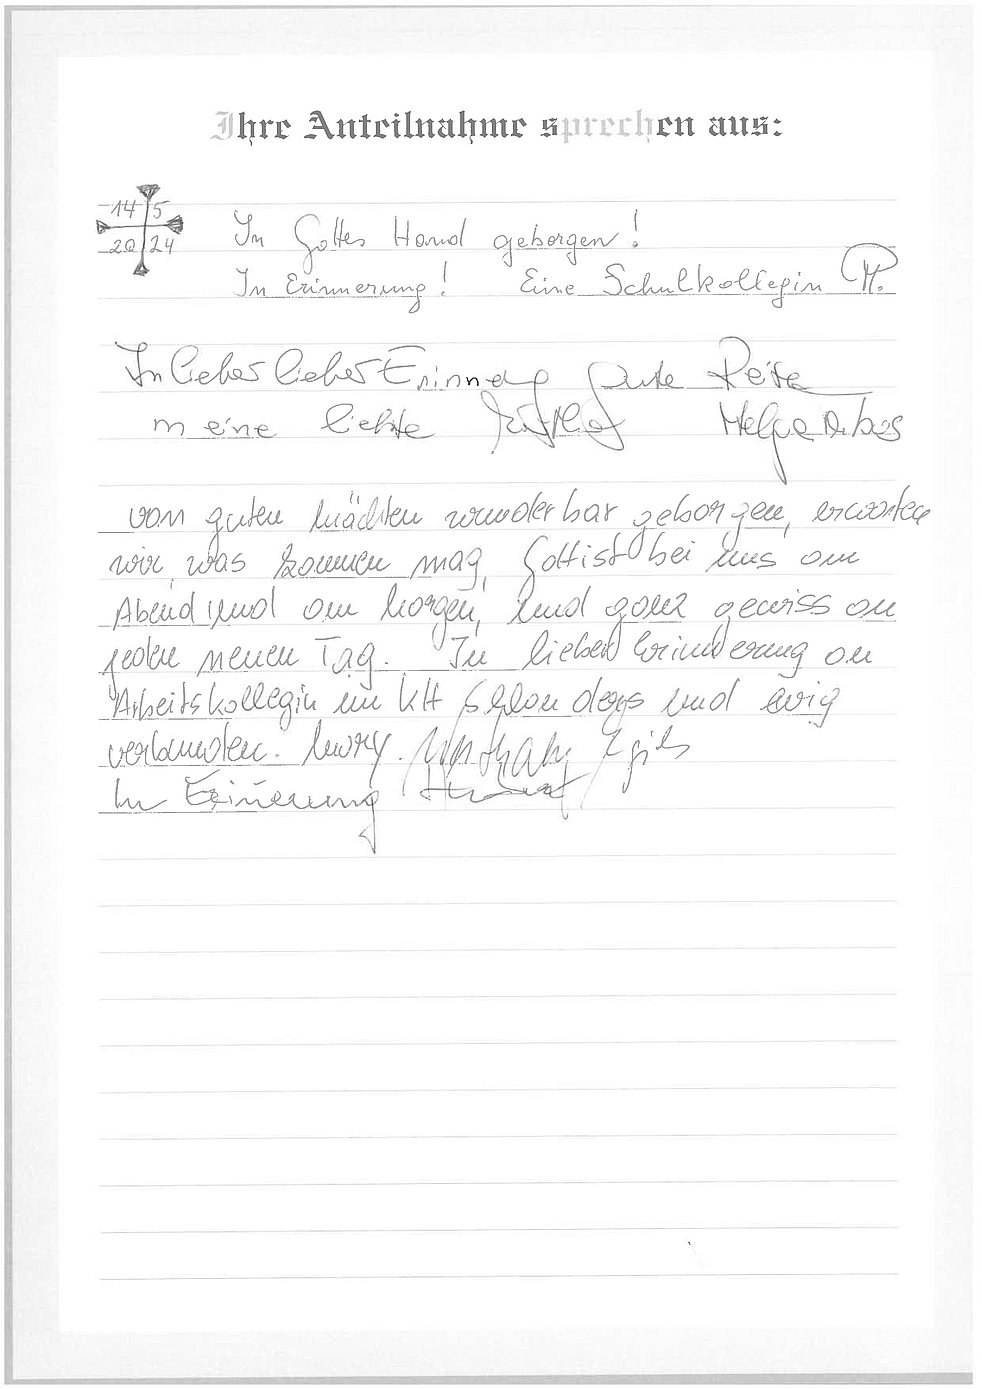 Ihre Anteilnahme sprechen aus:
14 5
2024
In Gottes Hand geborgen!
In Erinnerung! Eine Schulkollegin
In lieber lieber Gute Reise
meine liebste Helga
von guten Mächten wunderbar geborgen, erwarten
wir, was kommen mag, Gott ist bei uns am
Abend und am Morgen, und ganz gewiss an
jeden neuen Tag. In lieber Erinnerung an
Arbeitskollegin im KH und ewig
verbunden.
In Erinnerung